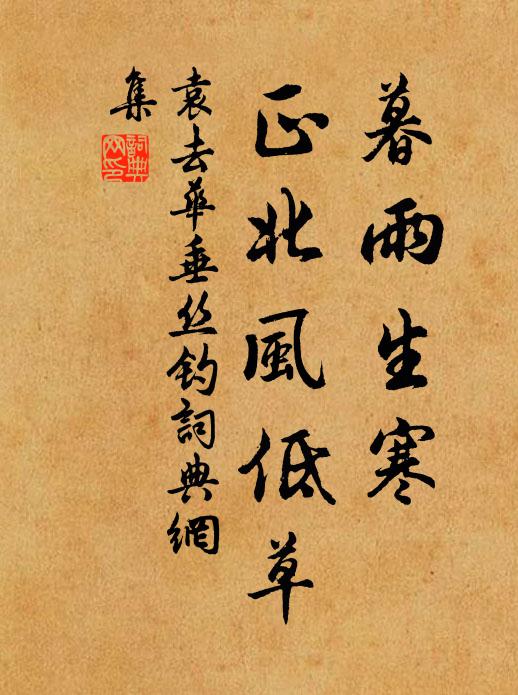 暮雨生寒
正北風低草
袁去華垂丝釣詞典網
集
詞典
网印